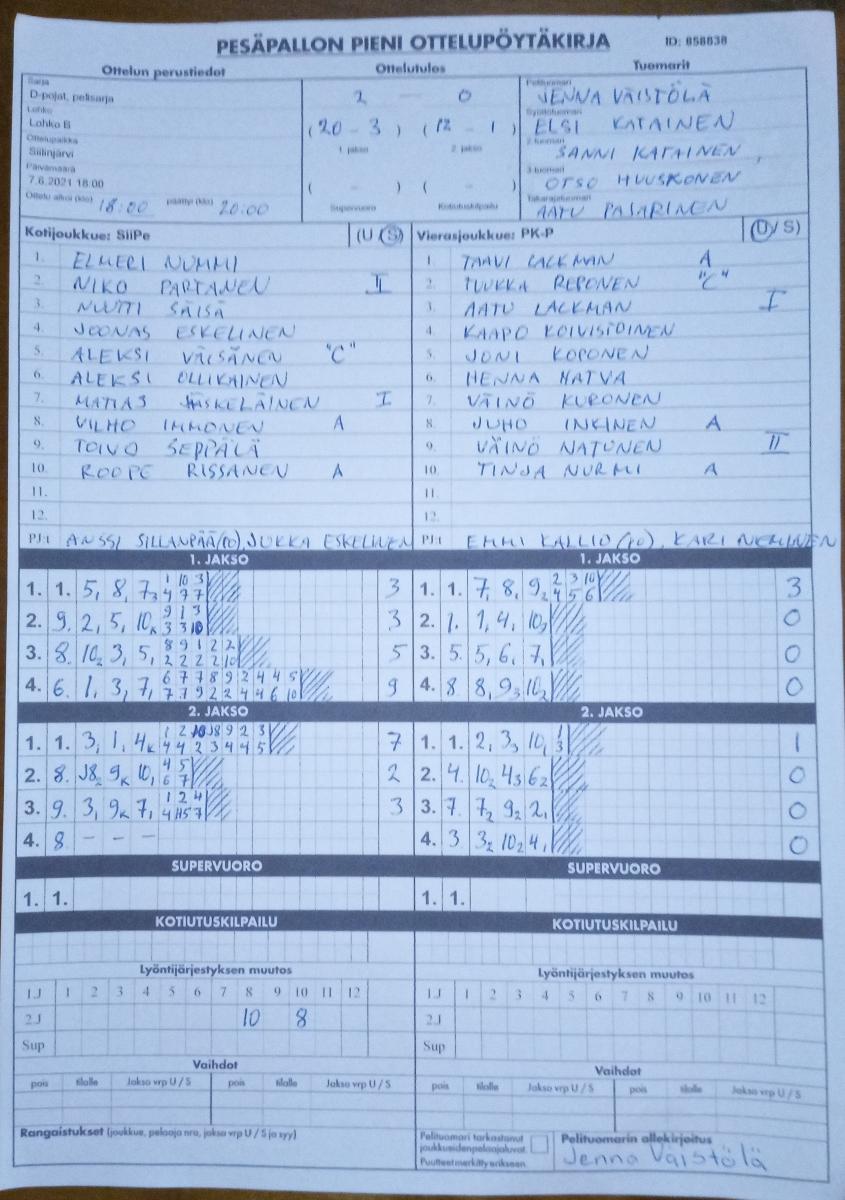 PESÄPALLON PIENI OTTELUPÖYTÄKIRJA ID: 858838
Ottelun perustiedot Ottelutulos Tuomarit
Sarja
D-pojat, pelisarja
Lohko
Lohko B
Ottelupaikka
Siilinjärvi
Päivämäärä
7.6.2021 18:00
Ottelu alkoi (klo) 18:00 päättyi (klo) 20:00
2 - 0
(20 - 3) (12 - 1)
1. jakso 2. jakso
( - ) ( - )
Supervuoro Kotiutuskilpailu
Pelituomari
JENNA VÄISTÖLÄ
Syöttötuomari
ELSI KATAINEN
2-tuomari
SANNI KATAINEN,
3-tuomari
OTSO HUUSKONEN
Takarajatuomari
AATU PASARINEN
Kotijoukkue: SiiPe (U / S)
1. ELMERI NUMMI
2. NIKO PARTANEN II
3. NUUTTI SÄISÄ
4. JOONAS ESKELINEN
5. ALEKSI VÄISÄNEN "C"
6. ALEKSI OLLIKAINEN
7. MATIAS JÄÄSKELÄINEN I
8. VILHO IMMONEN A
9. TOIVO SEPPÄLÄ
10. ROOPE RISSANEN A
11.
12.
PJ:t ANSSI SILLANPÄÄ (PJ), JUKKA ESKELINEN
Vierasjoukkue: PK-P (U / S)
1. TAAVI LACKMAN A
2. TUUKKA REPONEN "C"
3. AATU LACKMAN I
4. KAAPO KOIVISTOINEN
5. JONI KOPONEN
6. HENNA HATVA
7. VÄINÖ KURONEN
8. JUHO INKINEN A
9. VÄINÖ NATUNEN II
10. TINJA NURMI A
11.
12.
PJ:t EMMI KALLIO (PJ), KARI NEMINEN
1. JAKSO
1. 1. 5, 8, 7₃ 1 10 3 3
4 7 7
2. 9. 2, 5, 10ₖ 9 1 3 3
3 3 10
3. 8. 10₂ 3, 5, 8 9 1 2 2 5
2 2 2 2 10
4. 6. 1, 3, 7, 6 7 7 8 9 2 4 4 5 9
7 7 9 2 2 4 4 6 10
1. JAKSO
1. 1. 7, 8, 9₂ 2 3 10 3
4 5 6
2. 1. 1, 4, 10₃ 0
3. 5. 5, 6, 7, 0
4. 8 8, 9₃ 10₂ 0
2. JAKSO
1. 1. 3, 1, 4ₖ 1 2 10 J8 9 2 3 7
4 4 2 3 4 4 5
2. 8. J8₂ 9ₖ 10, 4 5 2
6 7
3. 9. 3, 9ₖ 7, 1 2 4 3
4 H5 7
4. 8 - - -
2. JAKSO
1. 1. 2, 3₃ 10, 1 1
3
2. 4. 10₂ 4₃ 6₂ 0
3. 7. 7₂ 9₂ 2, 0
4. 3 3₂ 10₂ 4, 0
SUPERVUORO SUPERVUORO
1. 1. 1. 1.
KOTIUTUSKILPAILU KOTIUTUSKILPAILU
Lyöntijärjestyksen muutos
1J 1 2 3 4 5 6 7 8 9 10 11 12
2J 10 8
Sup
Lyöntijärjestyksen muutos
1J 1 2 3 4 5 6 7 8 9 10 11 12
2J
Sup
Vaihdot Vaihdot
pois tilalle Jakso vrp U / S pois tilalle Jakso vrp U / S
pois tilalle Jakso vrp U / S pois tilalle Jakso vrp U / S
Rangaistukset (joukkue, pelaaja nro, jakso vrp U / S ja syy)
Pelituomari tarkastanut
joukkueiden pelaajaluvat.
Puutteet merkitty erikseen.
Pelituomarin allekirjoitus
Jenna Väistölä